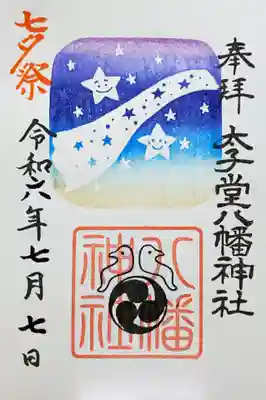 奉拝
太子堂八幡神社
八幡神社
七夕祭
令和六年七月七日